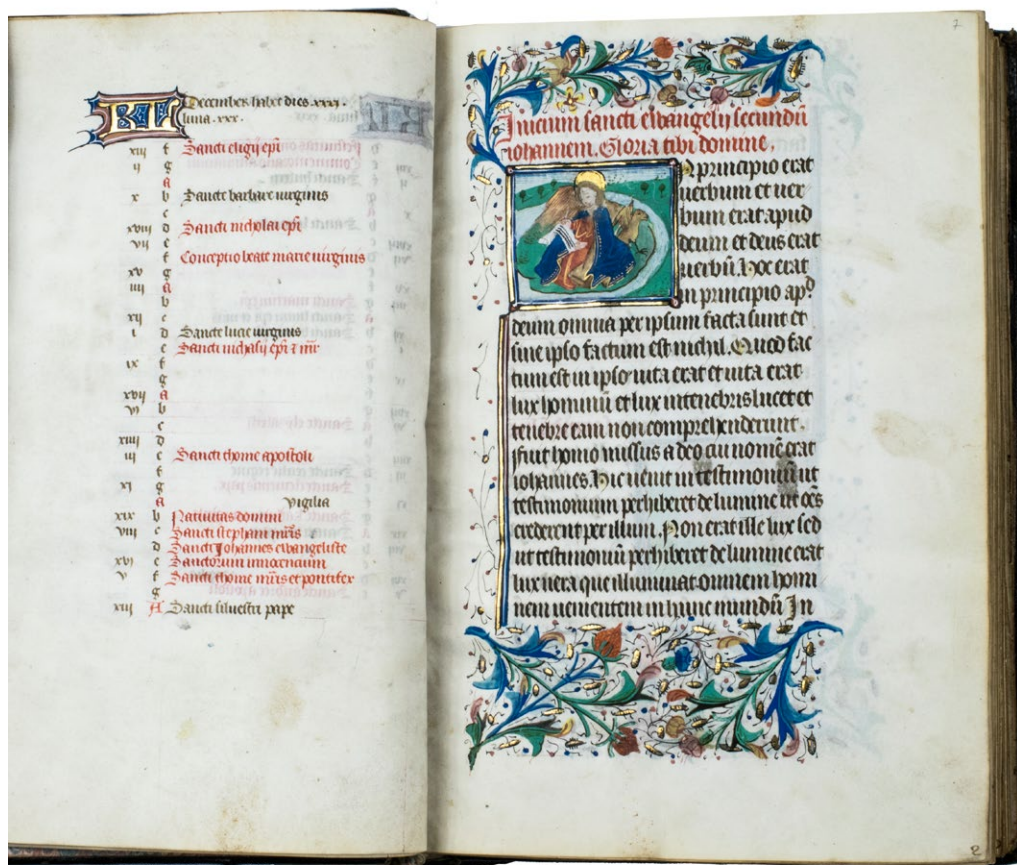 KL December habet dies xxxi.
luna .xxx.
xiij f Sancti eligij epi
ij g
A
x b Sancte barbare uirginis
c
xviij d Sancti nicholai epi
vij e
f Conceptio beate marie uirginis
xv g
iiij A
b
xij c
i d Sancte lucie uirginis
e Sancti nichasij epi ⁊ mr
ix f
g
xvij A
vi b
c
xiiij d
iij e Sancti thome apostoli
f
xi g
A Vigilia
xix b Natiuitas domini
viij c Sancti stephani mris
d Sancti Johannes ewangeliste
xvj e Sanctorum innocentium
v f Sancti thome mris et pontifex
g
xiij A Sancti siluestri pape
7
Inicium sancti ewangelij secundū
iohannem. Gloria tibi domine.
In principio erat
uerbum et uer
bum erat apud
deum et deus erat
uerbū. Hoc erat
in principio apd
deum omnia per ipsum facta sunt et
sine ipso factum est nichil. Quod fac
tum est in ipso uita erat et uita erat
lux hominū et lux in tenebris lucet et
tenebre eam non comprehenderunt.
Fuit homo missus a deo cui nomē erat
iohannes. Hic uenit in testimoniū ut
testimonium perhiberet de lumine ut oēs
crederent per illum. Non erat ille lux sed
ut testimoniū perhiberet de lumine erat
lux uera que illuminat omnem homi
nem uenientem in hunc mundū In